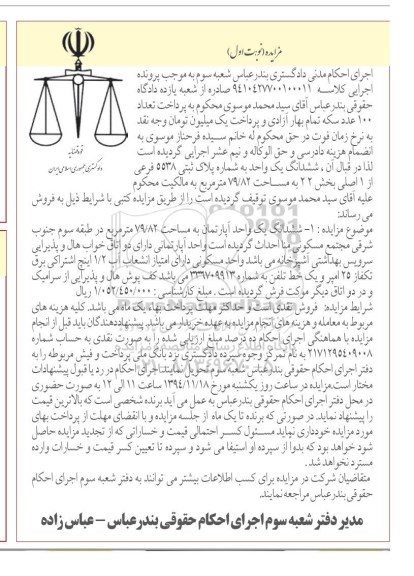 مزایده (نوبت اول)
قوه قضائیه
دادگستری جمهوری اسلامی ایران
اجرای احکام مدنی دادگستری بندرعباس شعبه سوم به موجب پرونده
اجرایی کلاسه ۹۴۱۰۴۲۷۷۰۰۱۰۰۰۱۱ صادره از شعبه یازده دادگاه
حقوقی بندرعباس آقای سید محمد موسوی محکوم به پرداخت تعداد
۱۰۰ عدد سکه تمام بهار آزادی و پرداخت یک میلیون تومان وجه نقد
به نرخ زمان فوت در حق محکوم له خانم سیده فرحناز موسوی به
انضمام هزینه دادرسی و حق الوکاله و نیم عشر اجرایی گردیده است
لذا در قبال آن ، ششدانگ یک واحد به شماره پلاک ثبتی ۵۵۳۸ فرعی
از ۱ اصلی بخش ۲۲ به مساحت ۷۹/۸۲ مترمربع به مالکیت محکوم
علیه آقای سید محمد موسوی توقیف گردیده است را از طریق مزایده کتبی با شرایط ذیل به فروش
می رساند:
موضوع مزایده : ۱- ششدانگ یک واحد آپارتمان به مساحت ۷۹/۸۲ مترمربع در طبقه سوم جنوب
شرقی مجتمع مسکونی بنا احداث گردیده است واحد آپارتمانی دارای دو اتاق خواب هال و پذیرایی
سرویس بهداشتی آشپزخانه می باشد واحد مسکونی دارای امتیاز انشعاب آب ۱/۲ اینچ اشتراکی برق
تکفاز ۲۵ آمپر و یک خط تلفن به شماره ۳۳۷۰۹۹۱۳ می باشد کف پوش هال و پذیرایی از سرامیک
و در دو اتاق دیگر موکت فرش گردیده است . مبلغ کارشناسی : ۱/۰۵۲/۴۵۰/۰۰۰ ریال
شرایط مزایده: فروش نقدی است و حداکثر مهلت پرداخت بهاء یک ماه می باشد. کلیه هزینه های
مربوط به معامله و هزینه های انجام مزایده به عهده خریدار می باشد. پیشنهاددهندگان باید قبل از انجام
مزایده با هماهنگی اجرای احکام ده درصد مبلغ ارزیابی شده را به صورت نقدی به حساب شماره
۲۱۷۱۲۹۵۴۰۹۰۰۸ به نام تمرکز وجوه سپرده دادگستری نزد بانک ملی پرداخت و فیش مربوطه را به
دفتر اجرای احکام حقوقی بندرعباس شعبه سوم تحویل نمایند. اجرای احکام در رد یا قبول پیشنهادات
مختار است.مزایده در ساعت روز یکشنبه مورخ ۱۳۹۴/۱۱/۱۸ ساعت ۱۱ الی ۱۲ به صورت حضوری
در محل دفتر اجرای احکام حقوقی بندرعباس به عمل می آید.برنده شخصی است که بالاترین قیمت
را پیشنهاد نماید. در صورتی که برنده تا یک ماه از جلسه مزایده و با انقضای مهلت از پرداخت بهای
مورد مزایده خودداری نماید مسئول کسر احتمالی قیمت و خساراتی که از تجدید مزایده حاصل
شود خواهد بود که بدوا از سپرده او استیفا می شود و سپرده تا تعیین کسر قیمت و خسارات وارده
مسترد نخواهد شد .
متقاضیان شرکت در مزایده برای کسب اطلاعات بیشتر می توانند به دفتر شعبه سوم اجرای احکام
حقوقی بندرعباس مراجعه نمایند.
مدیر دفتر شعبه سوم اجرای احکام حقوقی بندرعباس – عباس زاده